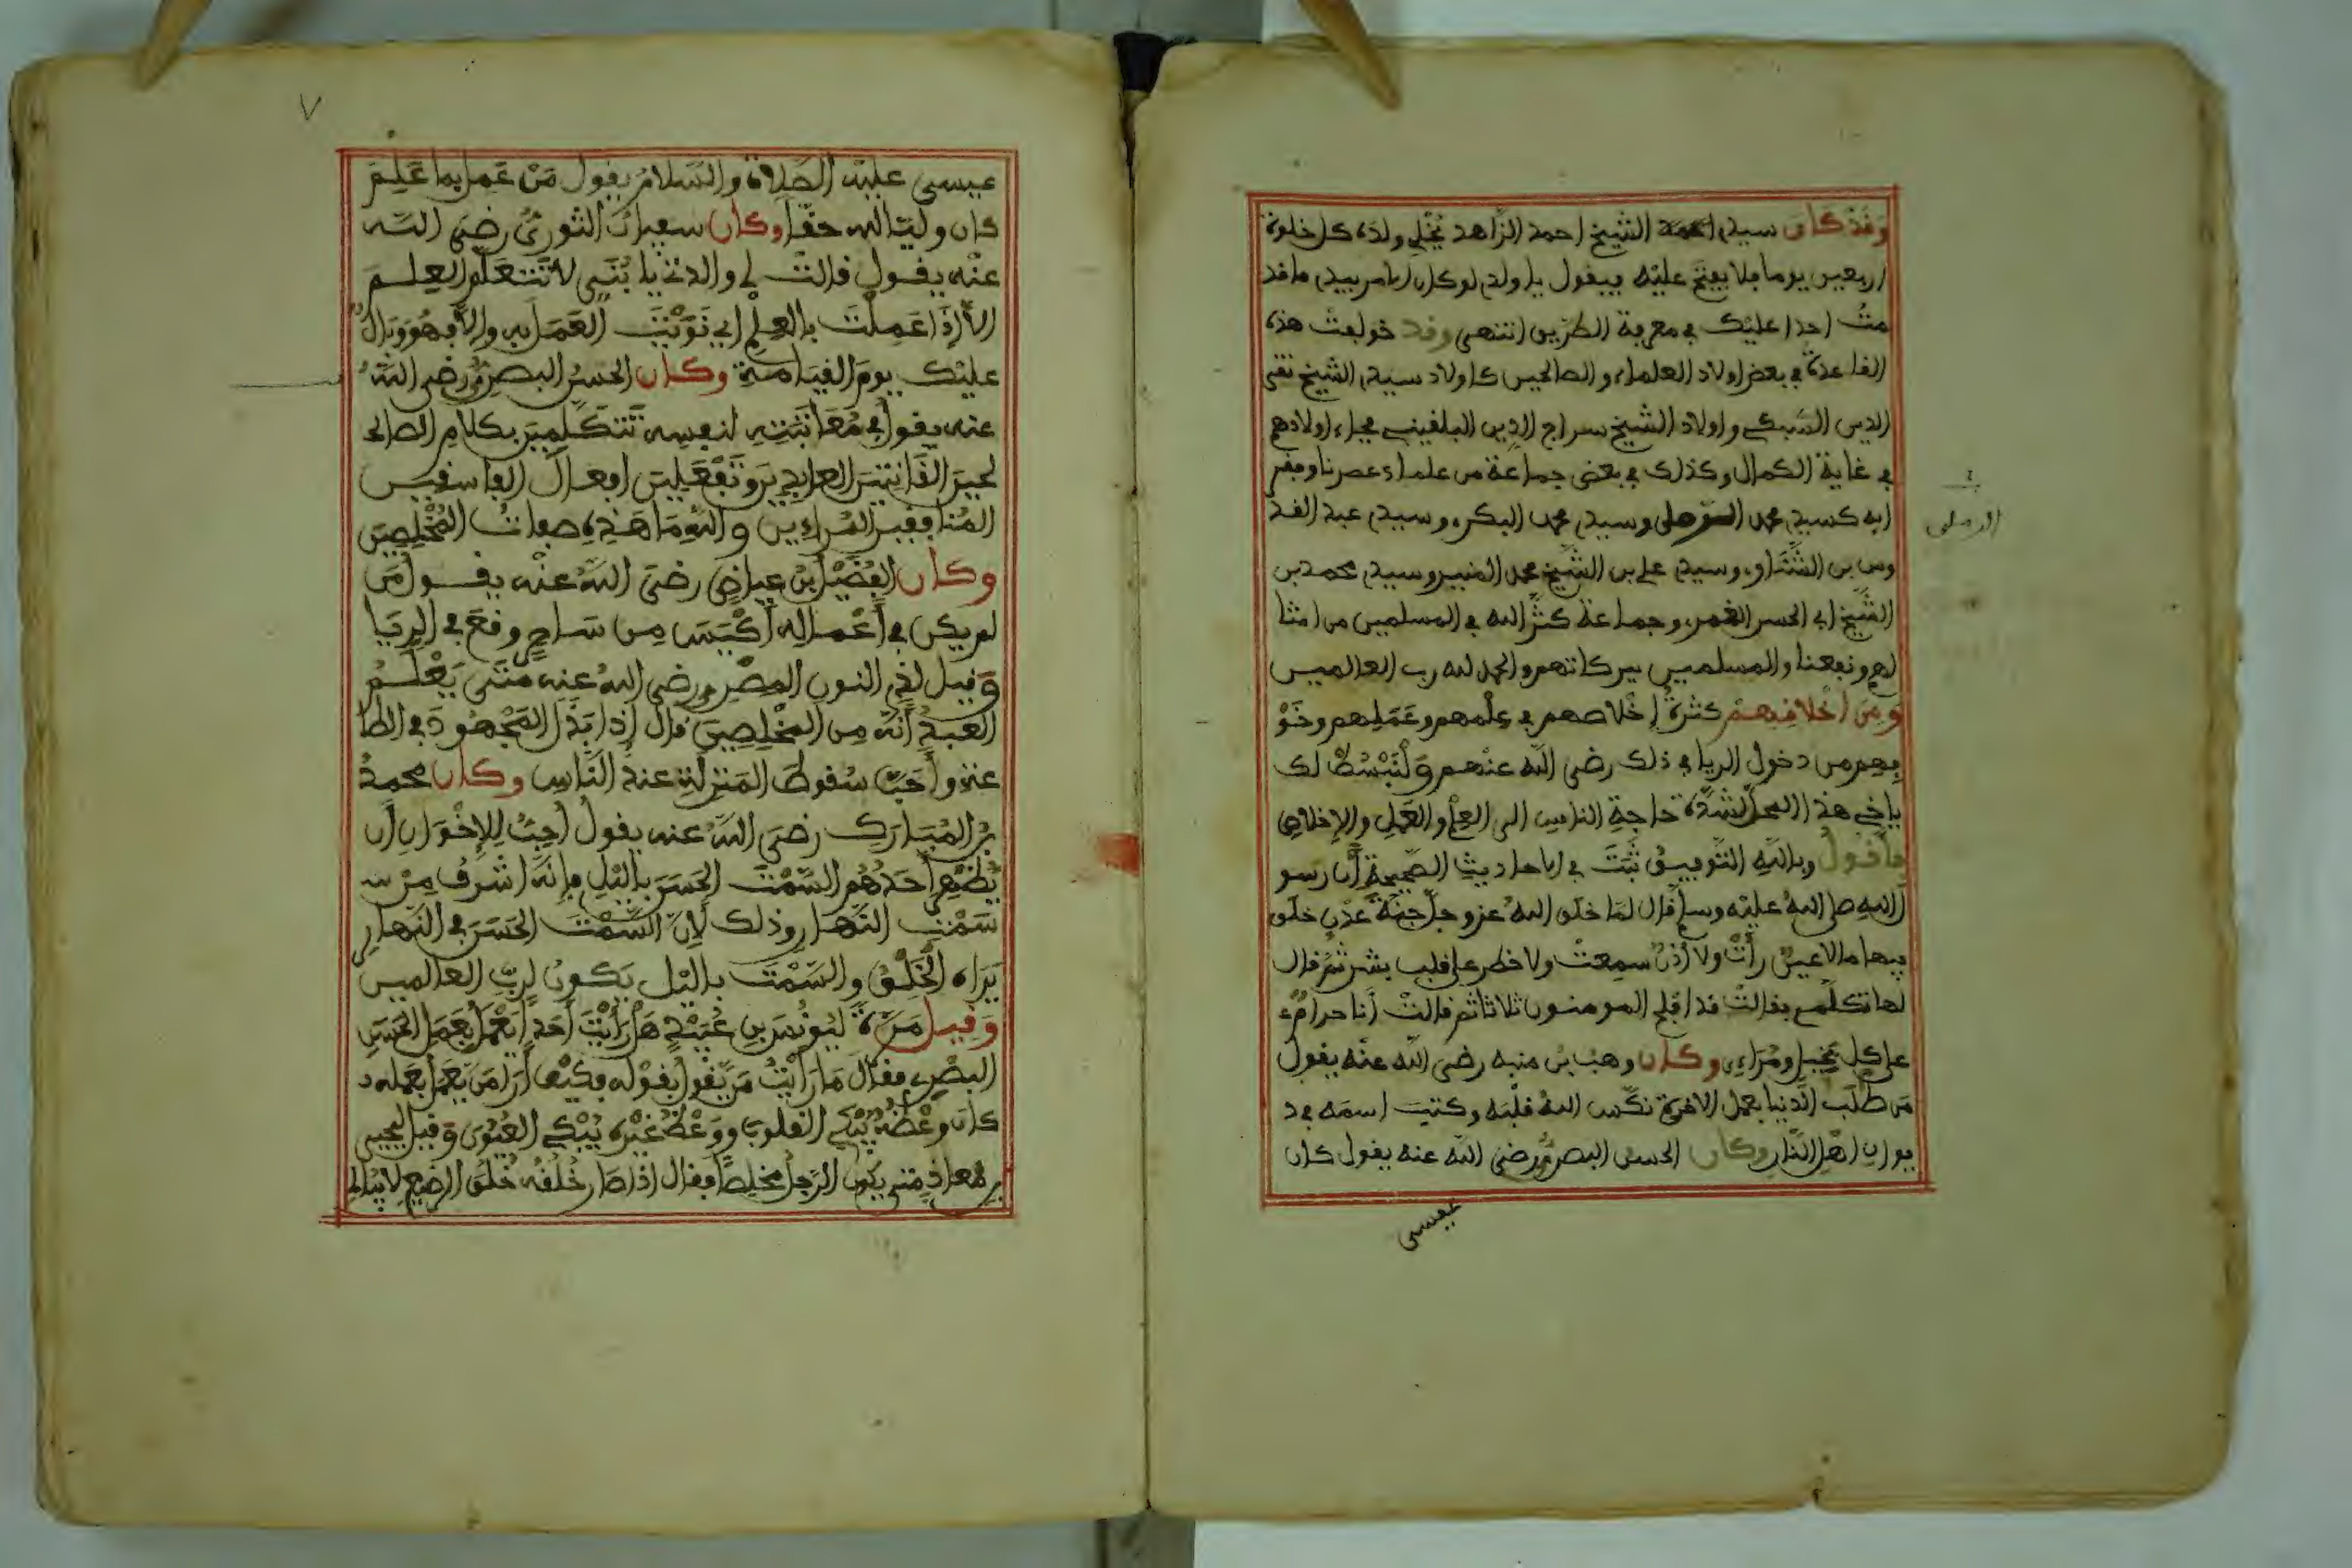 وقد كان سيدي احمد الشيخ احمد الزاهد يخلي ولده كل خلوة
اربعين يوما فلا يفتح عليه فيقول يا ولدي لو كان الامر بيدي ما قد
مت احدا عليك في معرفة الطريق انتهى وقد خولفت هذه
القاعدة في بعض اولاد العلماء والصالحين كاولاد سيدي الشيخ تقي
الدين السبكي واولاد الشيخ سراج الدين البلقيني فجاء اولادهم
في غاية الكمال وكذلك في بعض جماعة من علماء عصرنا ومفر
ابه كسيدي محمد الرملي وسيدي محمد البكري وسيدي عبد القد
الرملي
وس بن الشناوي وسيدي علي بن الشيخ محمد المنير وسيدي محمد بن
الشيخ ابي الحسن الغمري وجماعة كثر الله في المسلمين من امثا
لهم ونفعنا والمسلمين ببركاتهم والحمد لله رب العالمين
ومن اخلاقهم كثرة إخلاصهم في علمهم وعملهم وخو
فهم من دخول الريا في ذلك رضي الله عنهم ولنبسط لك
ياخي هذا المحل لشدة حاجة الناس الى العلم والعمل والإخلاص
فأقول وبالله التوفيق ثبت في الاحاديث الصحيحة أن رسو
ل الله صلى الله عليه وسلم قال لما خلق الله عز وجل جنة عدن خلق
فيها ما لا عين رأت ولا أذن سمعت ولا خطر على قلب بشر ثم قال
لها تكلمي فقالت قد افلح المومنون ثلاثا ثم قالت أنا حرام
على كل بخيل ومراءي وكان وهب بن منبه رضي الله عنه يقول
من طلب الدنيا بعمل الاخرة نكس الله قلبه وكتب اسمه في د
يوان اهل النار وكان الحسن البصري رضي الله عنه يقول كان
عيسى
٧
عيسى عليه الصلاة والسلام يقول من عمل بما علم
كان وليا لله حقا وكان سفيان الثوري رضي الله
عنه يقول قالت لي والدتي يا بني لا تتعلم العلم
الا إذا عملت بالعلم اي نويت العمل به والا فهو وبال
عليك يوم القيامة وكان الحسن البصري رضي الله
عنه يقول في معاتبته لنفسه تتكلمين بكلام الصالحـ
ـين القانتين العابدين وتفعلين افعال الفاسقين
المنافقين المراءين والله ما هذه صفات المخلصين
وكان الفضيل بن عياض رضي الله عنه يقول من
لم يكن في أعماله أكيس من ساحر وقع في الريا
وقيل لذي النون المصري رضي الله عنه متى يعلم
العبد أنه من المخلصين قال إذا بذل المجهود في الطا
عة وأحب سقوط المنزلة عند الناس وكان محمد
بن المبارك رضي الله عنه يقول أحب للإخوان أن
يظهر أحدهم السمت الحسن باليل فإنه اشرف من سـ
سمت النهار وذلك لأن السمت الحسن في النهار
يراه الخلق والسمت باليل يكون لرب العالمين
وقيل مرة ليونس بن عبيد هل رأيت أحدا يعمل بعمل الحسن
البصري فقال ما رأيت من يقول بقوله فكيف أرى من يعمل بعمله
كان وعظه يبكي القلوب ووعظ غيره يبكي العيون وقيل ليحيى
بن معاذ متى يكون الرجل مخلصا فقال اذا صار خلقه خلق الرضيع لا يبالي